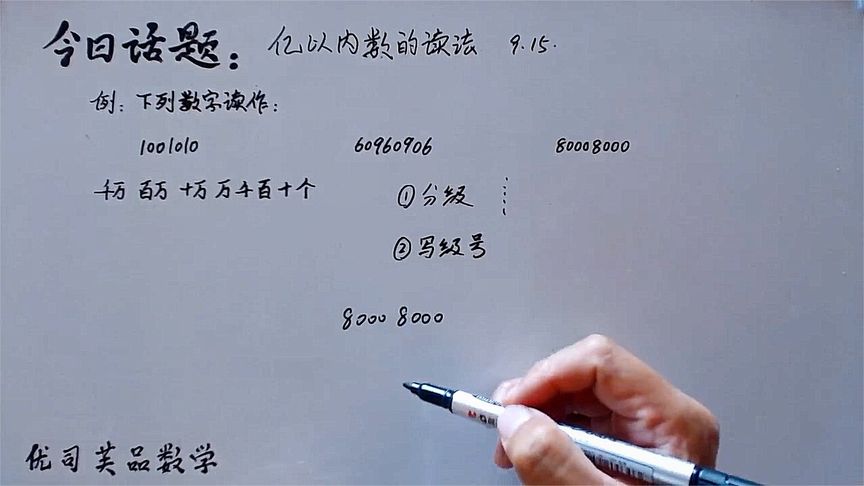 今日话题： 亿以内数的读法 9.15.
例：下列数字读作：
1001010 60960906 80008000
千万 百万 十万 万 千 百 十 个 ①分级
②写级号
8000 8000
优司芙品数学